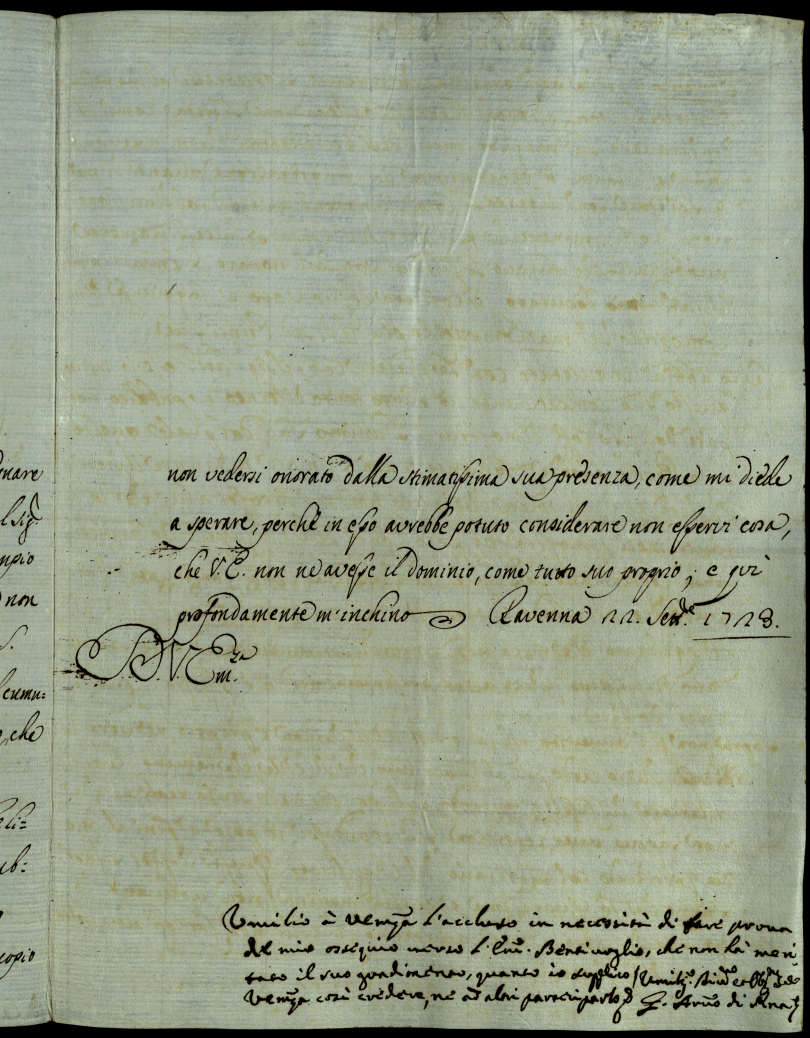 quare
l Sig.r
mpio
non
S.
l cumu=
, che
eli=
ub=
copio
non vedersi onorato dalla stimatissima sua presenza, come mi diede
a sperare, perche in esso avrebbe potuto considerare non esservi cosa,
che V. E. non ne avesse il dominio, come tutto suo proprio; e qui
profondamente m'inchino Ravenna 22. Sett.e 1728.
D. V. Em.za
Umilio à Vem.za l'accluso in necessità di fare prova
del mio ossequio verso l'Em. Bentivoglio, che non hà meri
tato il suo gradimento, quanto io supplico
Vem.za così credere, ne ad altri participarlo